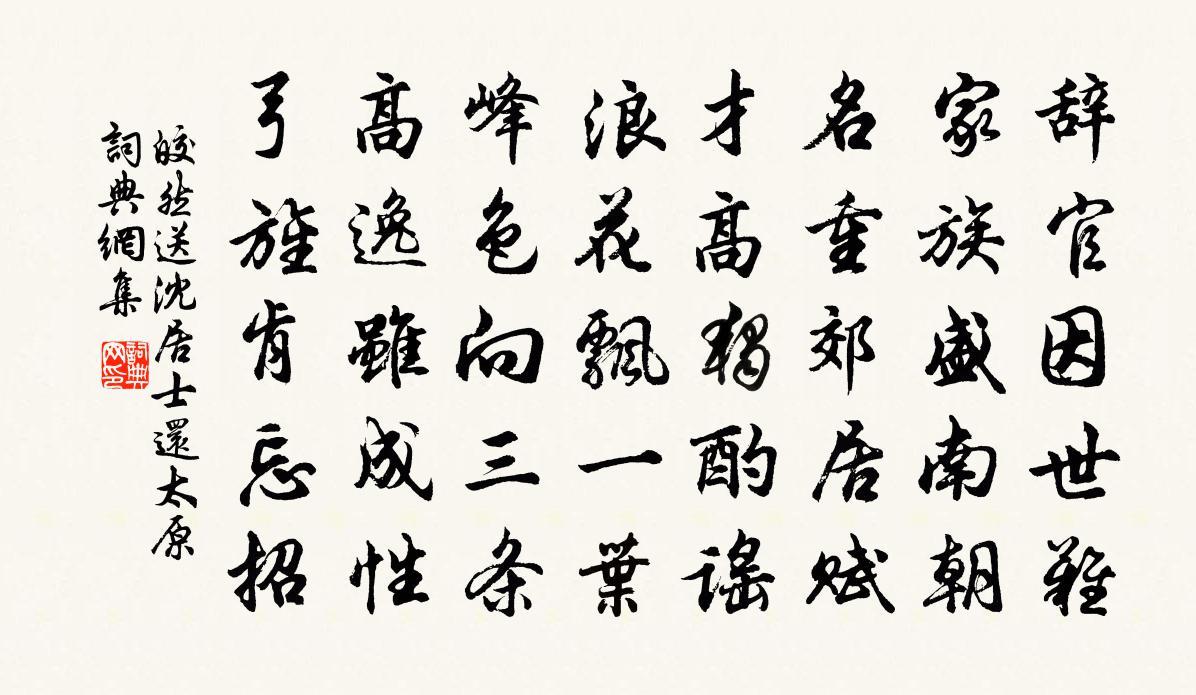 辞官因世難
家族盛南朝
名重郊居賦
才高獨酌謡
浪花飄一葉
峰色向三条
高逸雖成性
弓旌肯忘招
皎然送沈居士還太原
詞典網集
詞典网印